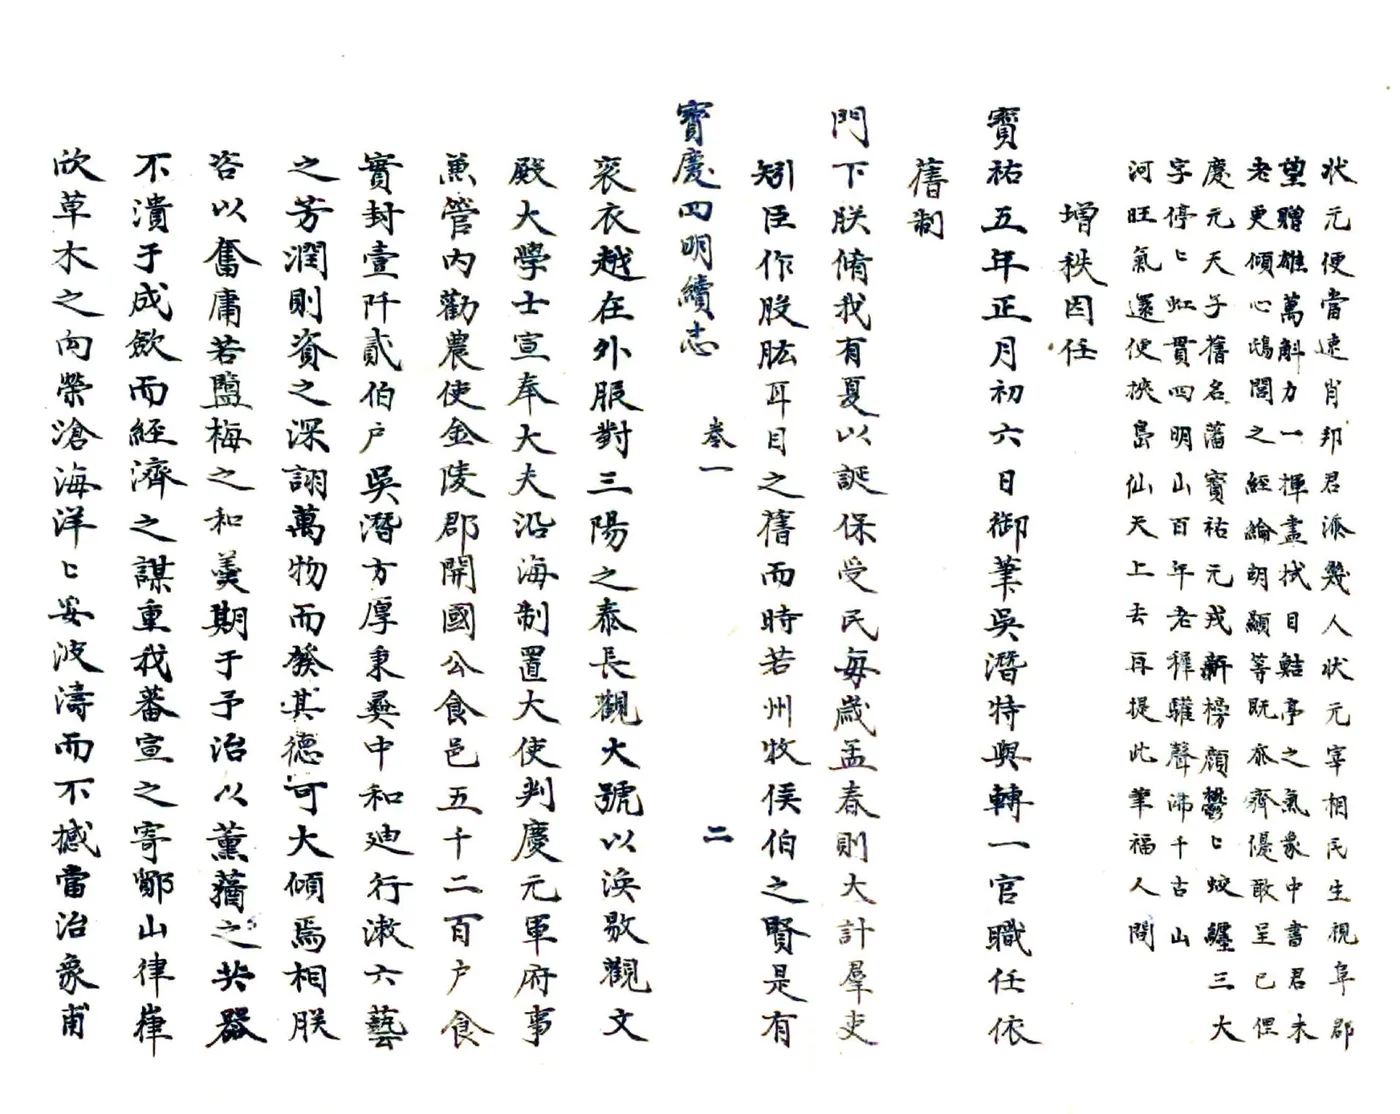 状元便當速肖邦君派幾人状元宰相民生視阜郡
望贈雄萬斛力一揮盡拭目鮚亭之氣象中書君未
老更傾心鴟閣之經綸胡顯等既忝齊優敢呈已俚
慶元天子舊名藩寳祐元戎新榜顔鬱〻蛟纒三大
字停〻虹貫四明山百年老穉驩聲沸千古山
河旺氣還便挾島仙天上去再提此筆福人間
增秩因任
寳祐五年正月初六日御筆吳潛特與轉一官職任依
舊制
門下朕脩我有夏以誕保受民每歲孟春則大計羣吏
矧臣作股肱耳目之舊而時若州牧侯伯之賢是有
寳慶四明續志 卷一 二
衮衣越在外服對三陽之泰長觀大號以渙敭觀文
殿大學士宣奉大夫沿海制置大使判慶元軍府事
兼管内勸農使金陵郡開國公食邑五千二百户食
實封壹阡貳伯户吳潛方厚秉彛中和廸行漱六藝
之芳潤則資之深詡萬物而發其德可大傾焉相朕
咨以奮庸若鹽梅之和羮期于予治以薰蕕之共器
不潰于成歛而經濟之謀重我蕃宣之寄鄮山律嵂
欣草木之向榮滄海洋〻妥波濤而不撼當治象甫